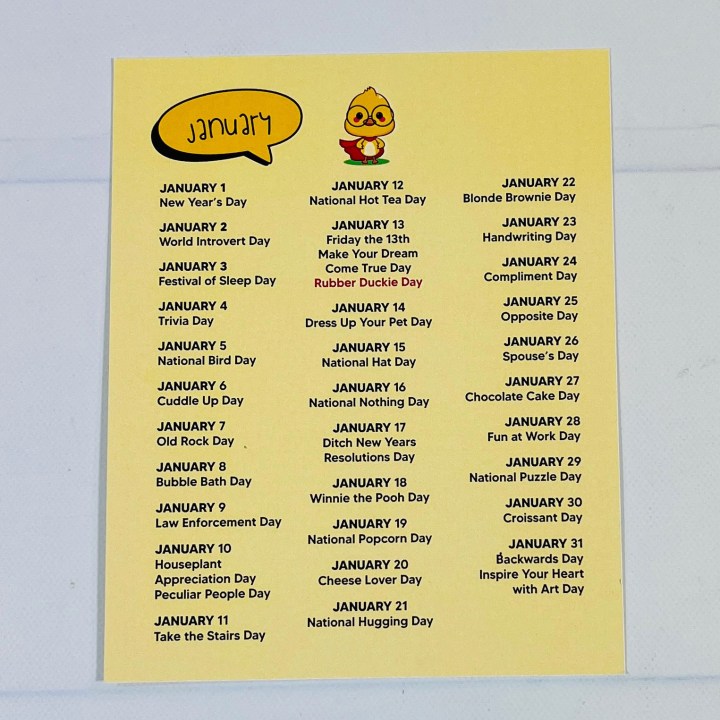 January
JANUARY 1
New Year's Day
JANUARY 2
World Introvert Day
JANUARY 3
Festival of Sleep Day
JANUARY 4
Trivia Day
JANUARY 5
National Bird Day
JANUARY 6
Cuddle Up Day
JANUARY 7
Old Rock Day
JANUARY 8
Bubble Bath Day
JANUARY 9
Law Enforcement Day
JANUARY 10
Houseplant
Appreciation Day
Peculiar People Day
JANUARY 11
Take the Stairs Day
JANUARY 12
National Hot Tea Day
JANUARY 13
Friday the 13th
Make Your Dream
Come True Day
Rubber Duckie Day
JANUARY 14
Dress Up Your Pet Day
JANUARY 15
National Hat Day
JANUARY 16
National Nothing Day
JANUARY 17
Ditch New Years
Resolutions Day
JANUARY 18
Winnie the Pooh Day
JANUARY 19
National Popcorn Day
JANUARY 20
Cheese Lover Day
JANUARY 21
National Hugging Day
JANUARY 22
Blonde Brownie Day
JANUARY 23
Handwriting Day
JANUARY 24
Compliment Day
JANUARY 25
Opposite Day
JANUARY 26
Spouse's Day
JANUARY 27
Chocolate Cake Day
JANUARY 28
Fun at Work Day
JANUARY 29
National Puzzle Day
JANUARY 30
Croissant Day
JANUARY 31
Backwards Day
Inspire Your Heart
with Art Day